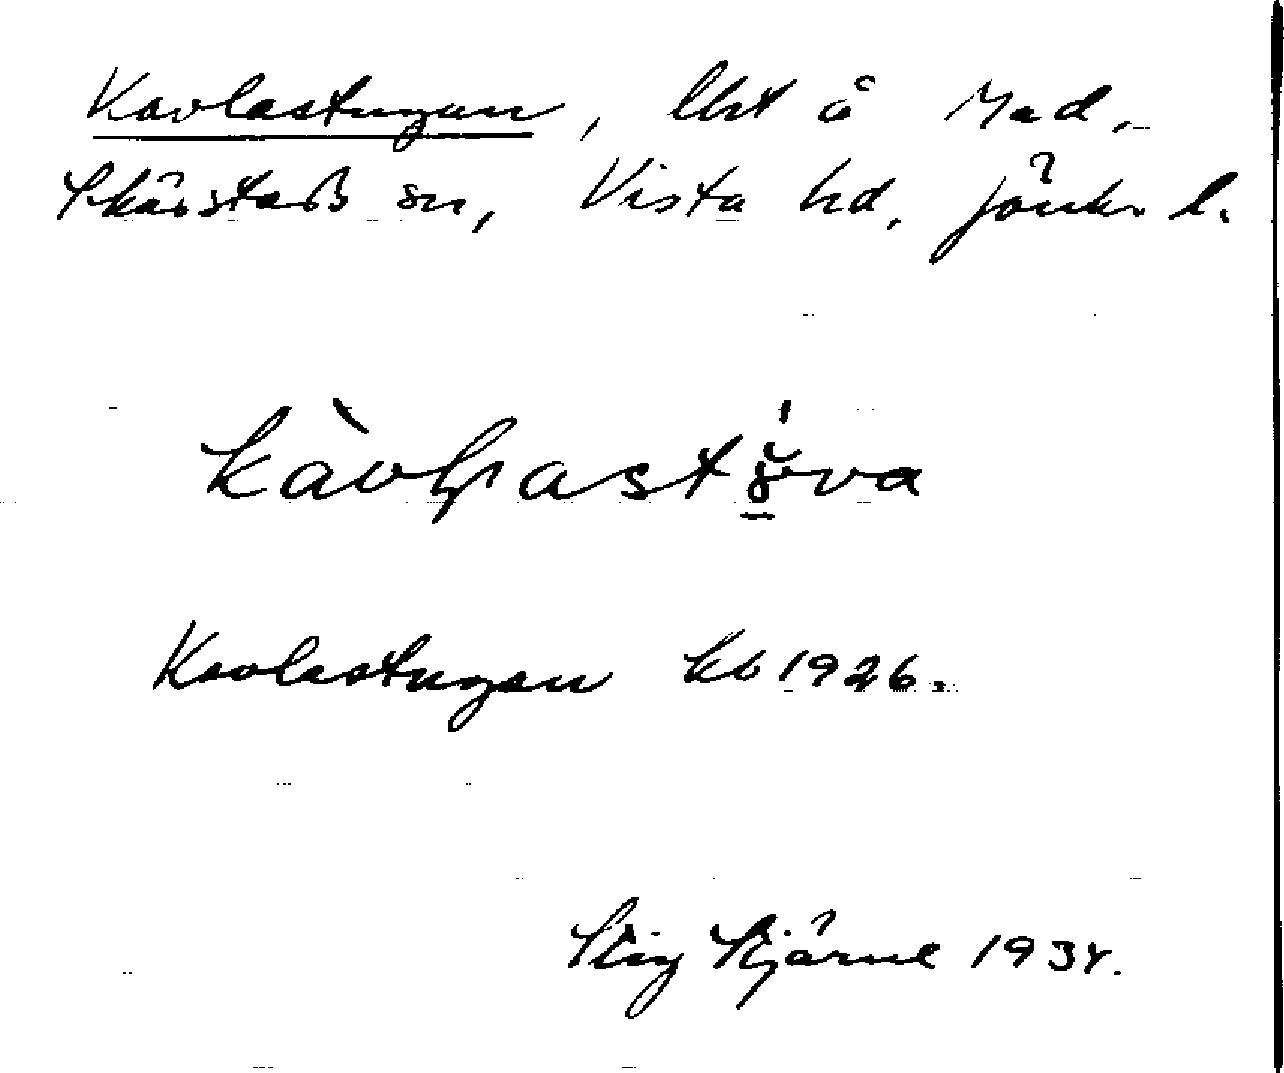 Kavlastugan, lht å Mad,
Skärstads sn, Vista hd, Jönk. l.
kàvḷastv̆va
Kavlastugan kb 1926.
Stig Stjärne 1934.